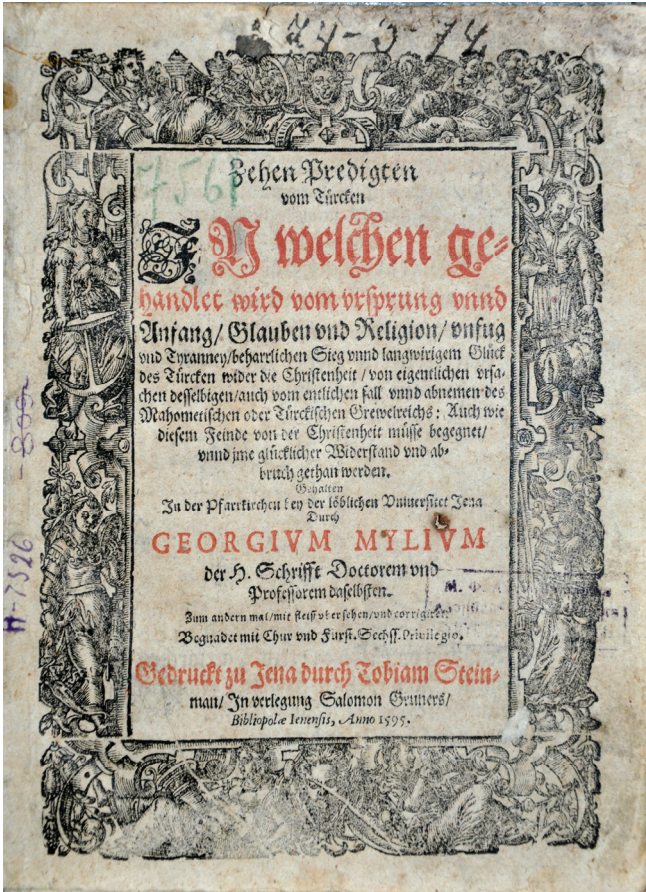 74-3-74
7561
Zehen Predigten
vom Türcken
IN welchen ge-
handlet wird vom vrsprung vnnd
Anfang/ Glauben vnd Religion/ vnfug
vnd Tyranney/beharrlichen Sieg vnnd langwirigem Glück
des Türcken wider die Christenheit/von eigentlichen vrsa-
chen desselbigen/auch vom entlichen fall vnnd abnemen des
Mahometischen oder Türckischen Grewelreichs: Auch wie
diesem Feinde von der Christenheit müsse begegnet/
vnnd jme glücklicher Widerstand vnd ab-
bruch gethan werden.
Gehalten
In der Pfarrkirchen bey der löblichen Vniuersitet Jena
Durch
GEORGIVM MYLIVM
der H. Schrifft Doctorem vnd
Professorem daselbsten.
Zum andern mal/mit fleiß vbersehen/vnd corrigiret.
Begnadet mit Chur vnd Fürst. Sechss. Privilegio.
Gedruckt zu Jena durch Tobiam Stein-
man/ In verlegung Salomon Gruners/
Bibliopolæ Ienensis, Anno 1595.
H-7526